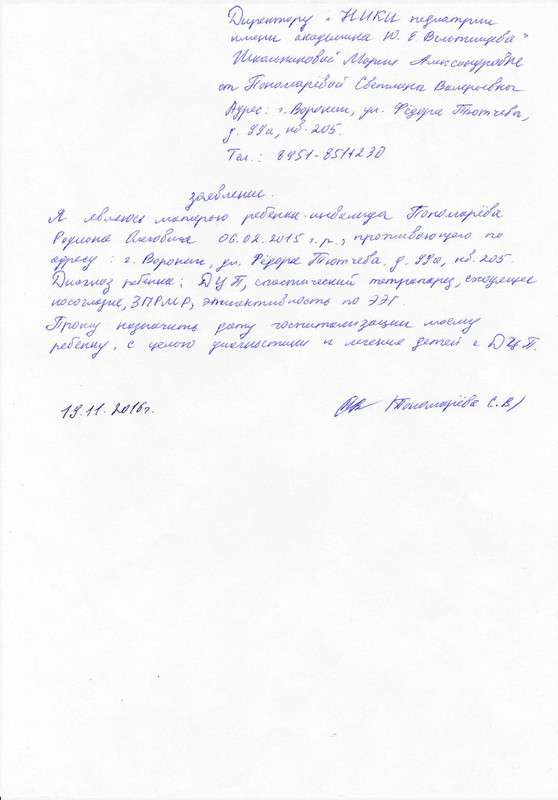 Директору „ НИКИ педиатрии
имени академика Ю. Е. Вельтищева"
Школьниковой Марии Александровне
от Пономарёвой Светланы Валерьевны
Адрес: г. Воронеж, ул. Фёдора Тютчева,
д. 99а, кв. 205.
Тел.: 8951-8514230
заявление.
Я являюсь матерью ребенка-инвалида Пономарёва
Родиона Олеговича 06.02.2015 г.р., проживающего по
адресу : г. Воронеж, ул. Фёдора Тютчева. д. 99а, кв. 205.
Диагноз ребенка: ДЦП, спастический тетрапарез, сходящее
косоглазие, ЗПРМР, эпиактивность по ЭЭГ.
Прошу назначить дату госпитализации моему
ребенку, с целью диагностики и лечения детей с ДЦП.
19.11.2016г. (Пономарёва С.В)